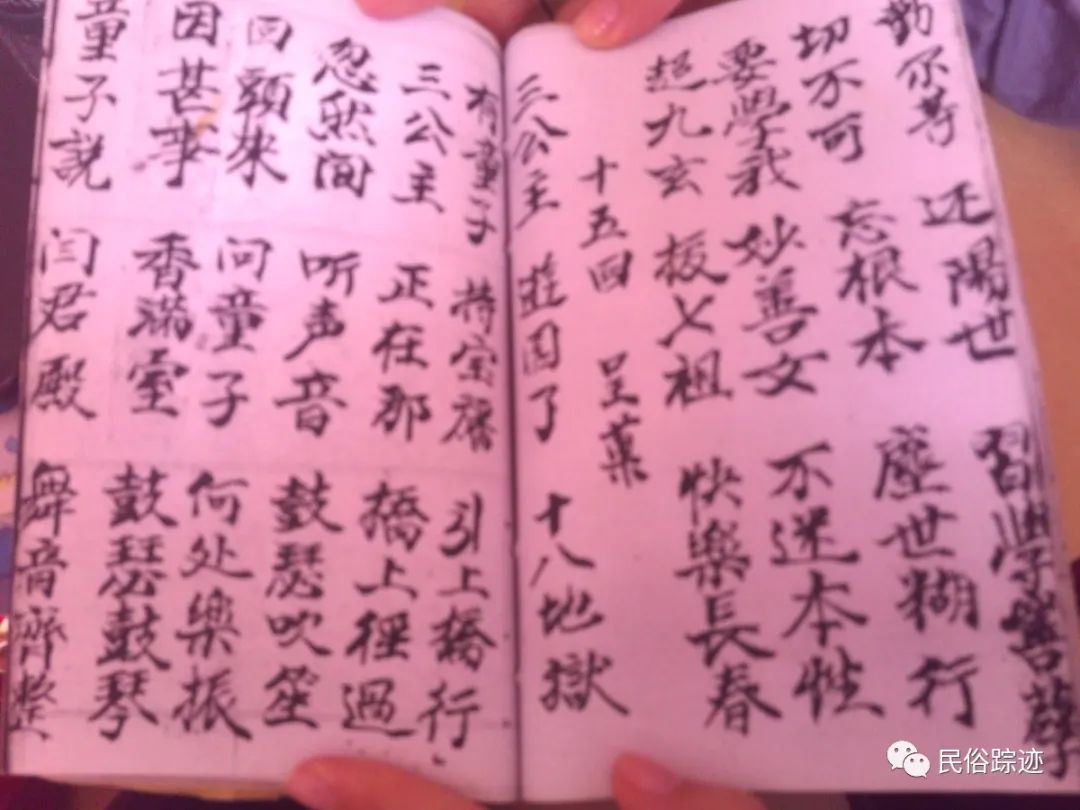 勸尔等 还陽世 習學善
切不可 忘根本 塵世糊行
要學我 妙善女 不迷本性
超九玄 拔七祖 快樂長春
十五回 呈葉
三公主 遊因了 十八地獄
有童子 持宝旛 引上橋行
三公主 正在那 橋上徑過
忽然間 听声音 鼓瑟吹笙
回頭來 问童子 何处樂振
因甚事 香滿室 鼓瑟鼓琴
童子説 闫君殿 舞音齊整
民俗踪迹